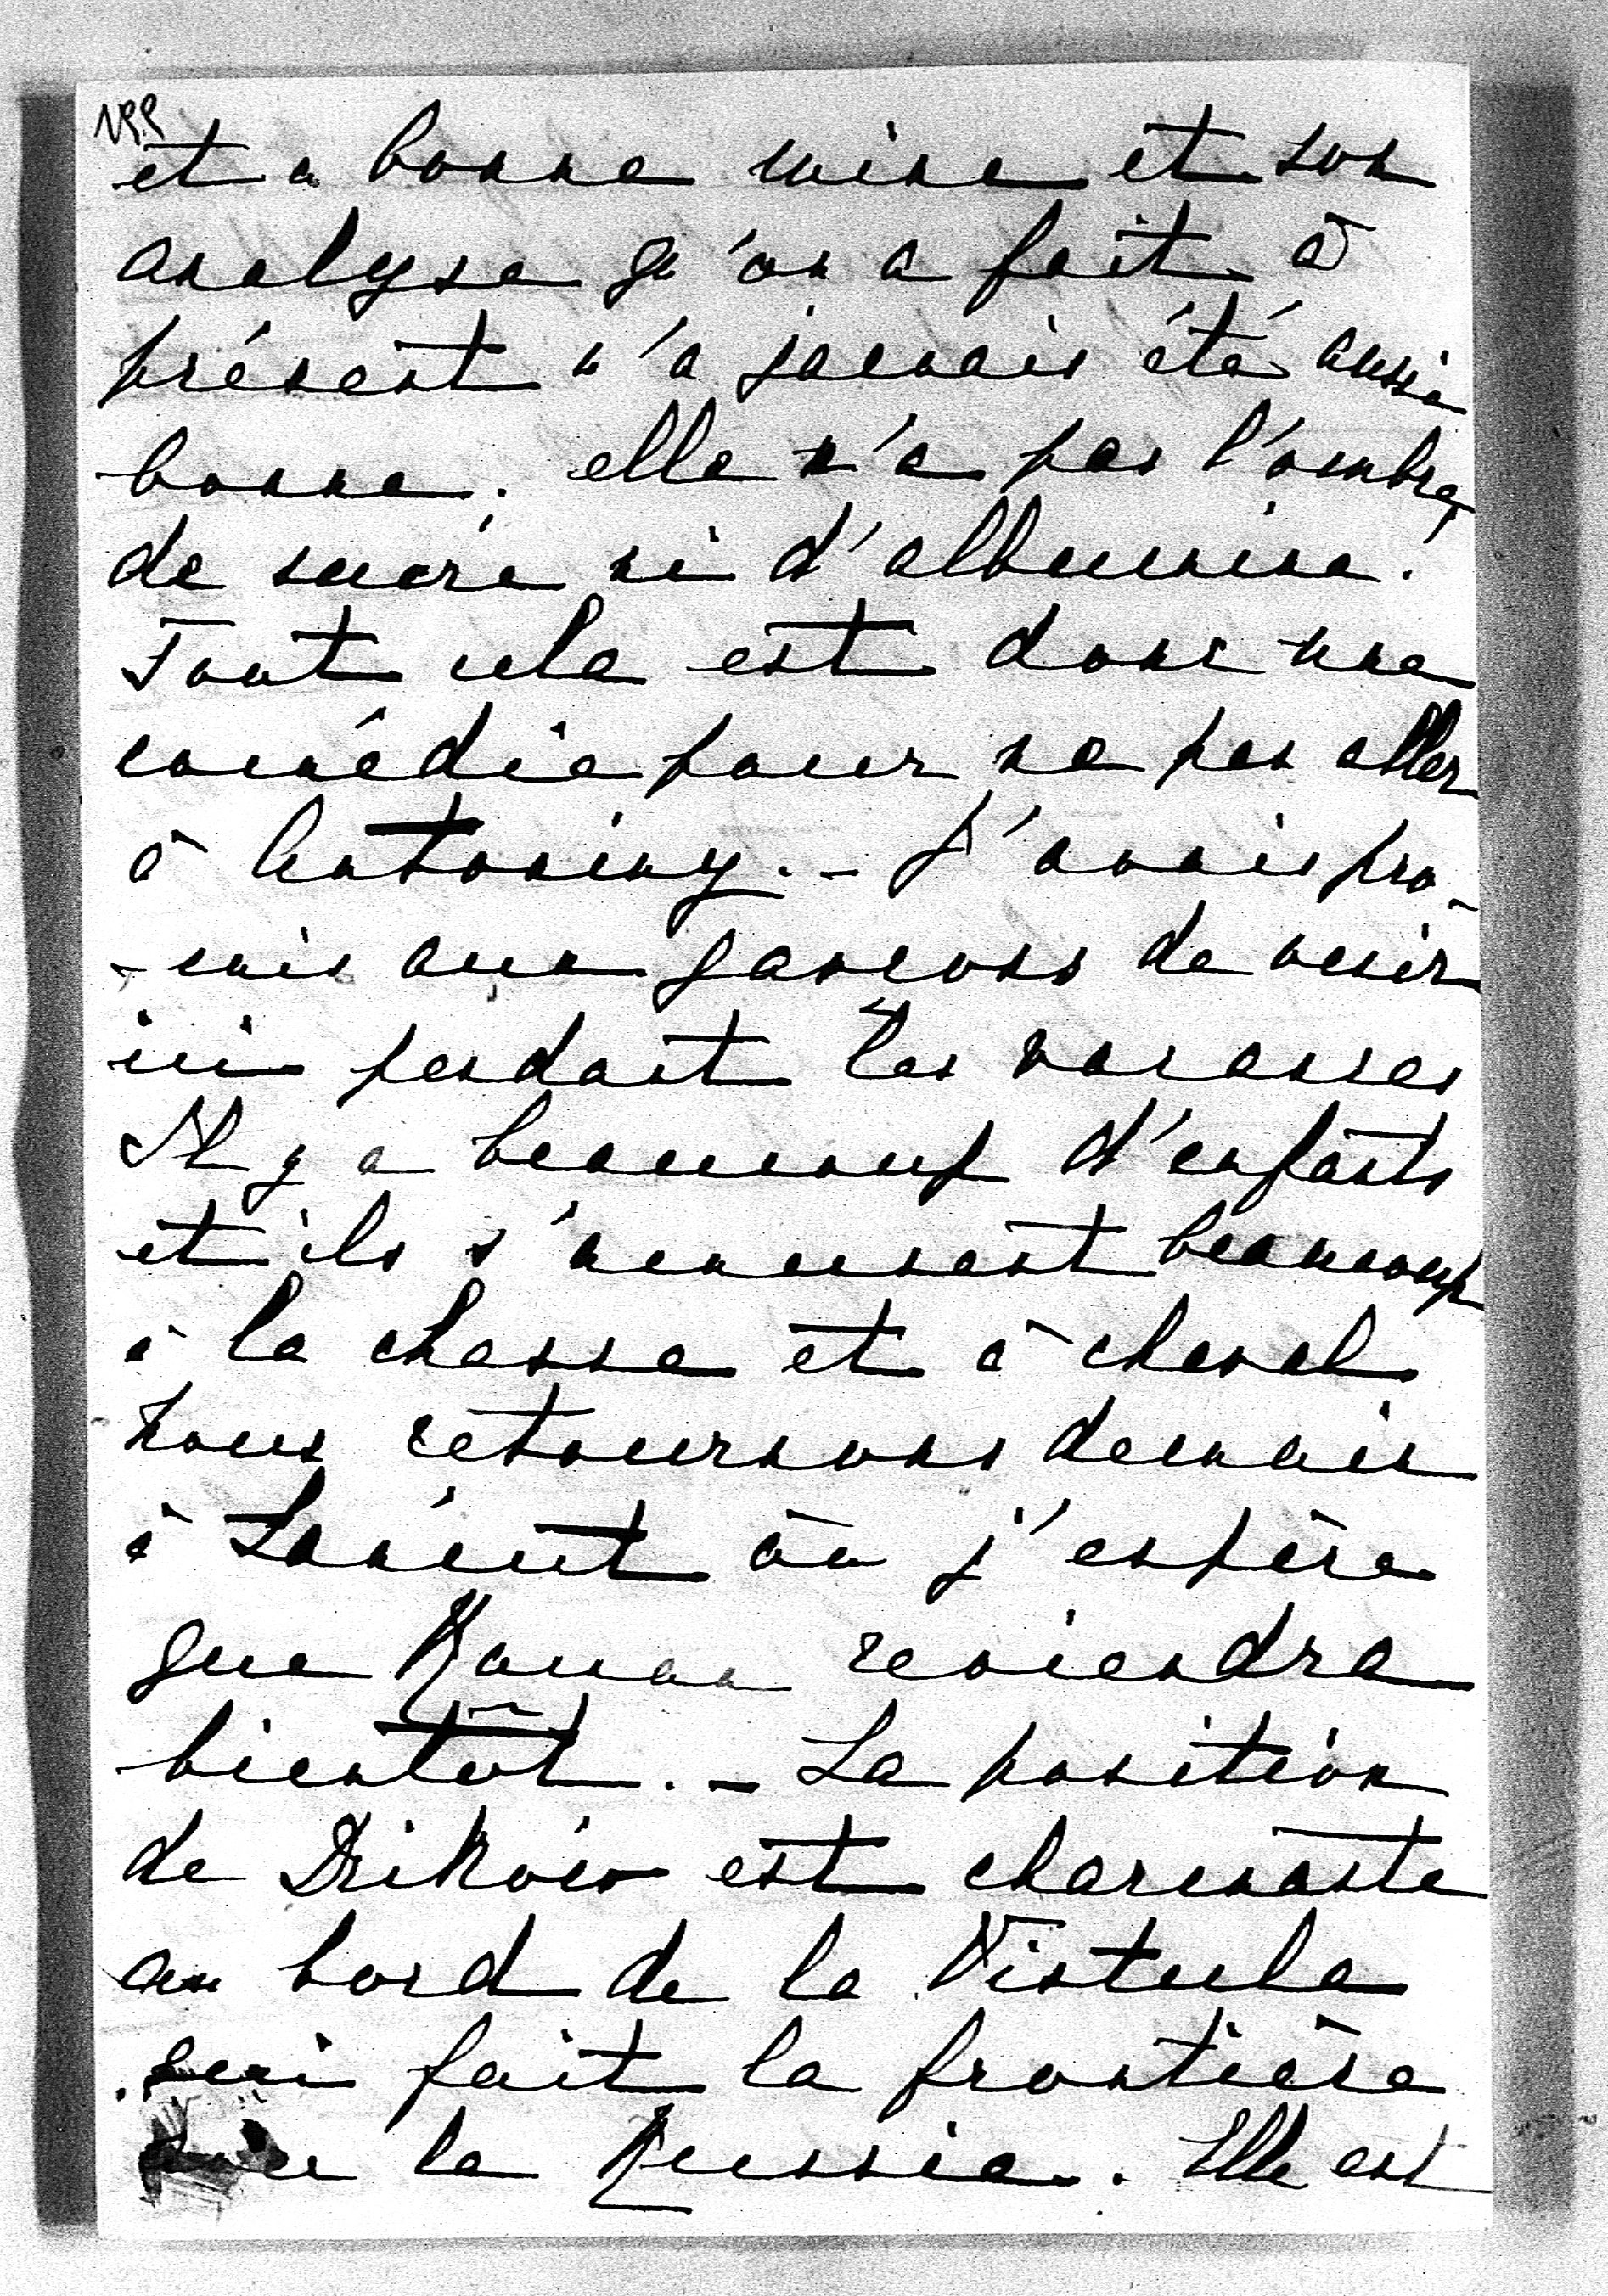 et a bonne mine et son
analyse qu'on a fait à
présent n'a jamais été aussi
bonne. elle n'a pas l'ombre
de sucre ni d'albumine.
Tout cela est donc une
comédie pour ne pas aller
à Antoniny. - J'avais pro-
-mis aux garçons de venir
ici pendant les vacances
Il y a beaucoup d'enfants
et ils s'amusent beaucoup
à la chasse et à cheval
nous retournons demain
à Łańcut où j'espère
que Roman reviendra
bientôt. - La position
de Dzików est charmante
au bord de la Vistule
qui fait la frontière
avec la Russie. Elle est